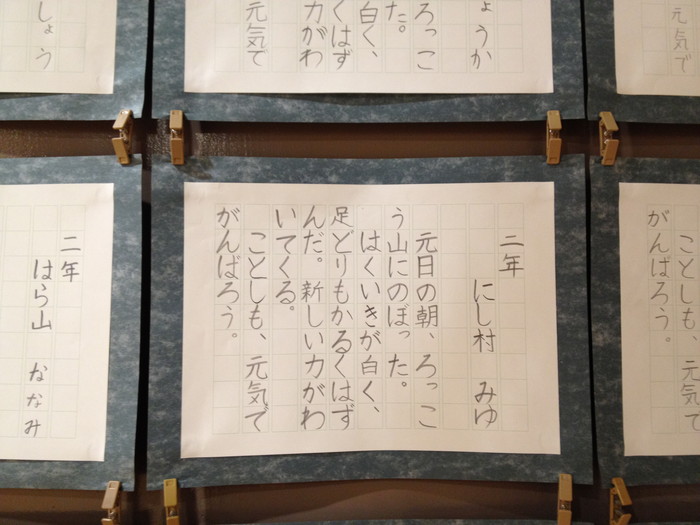 元気で
ょうか
ろっこ
た。
白く、
くはず
力がわ
元気で
しょう
ことしも、元気で
がんばろう。
二年
にし村　みゆ
元日の朝、ろっこ
う山にのぼった。
はくいきが白く、
足どりもかるくはず
んだ。新しい力がわ
いてくる。
ことしも、元気で
がんばろう。
二年
はら山　ななみ